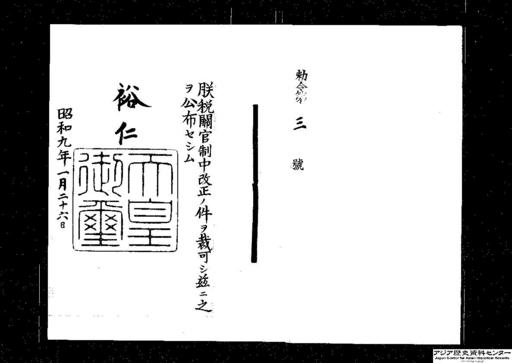 勅令第三號
朕税關官制中改正ノ件ヲ裁可シ茲ニ之
ヲ公布セシム
裕仁
天皇御璽
昭和九年一月二十六日
アジア歴史資料センター
Japan Center for Asian Historical Records